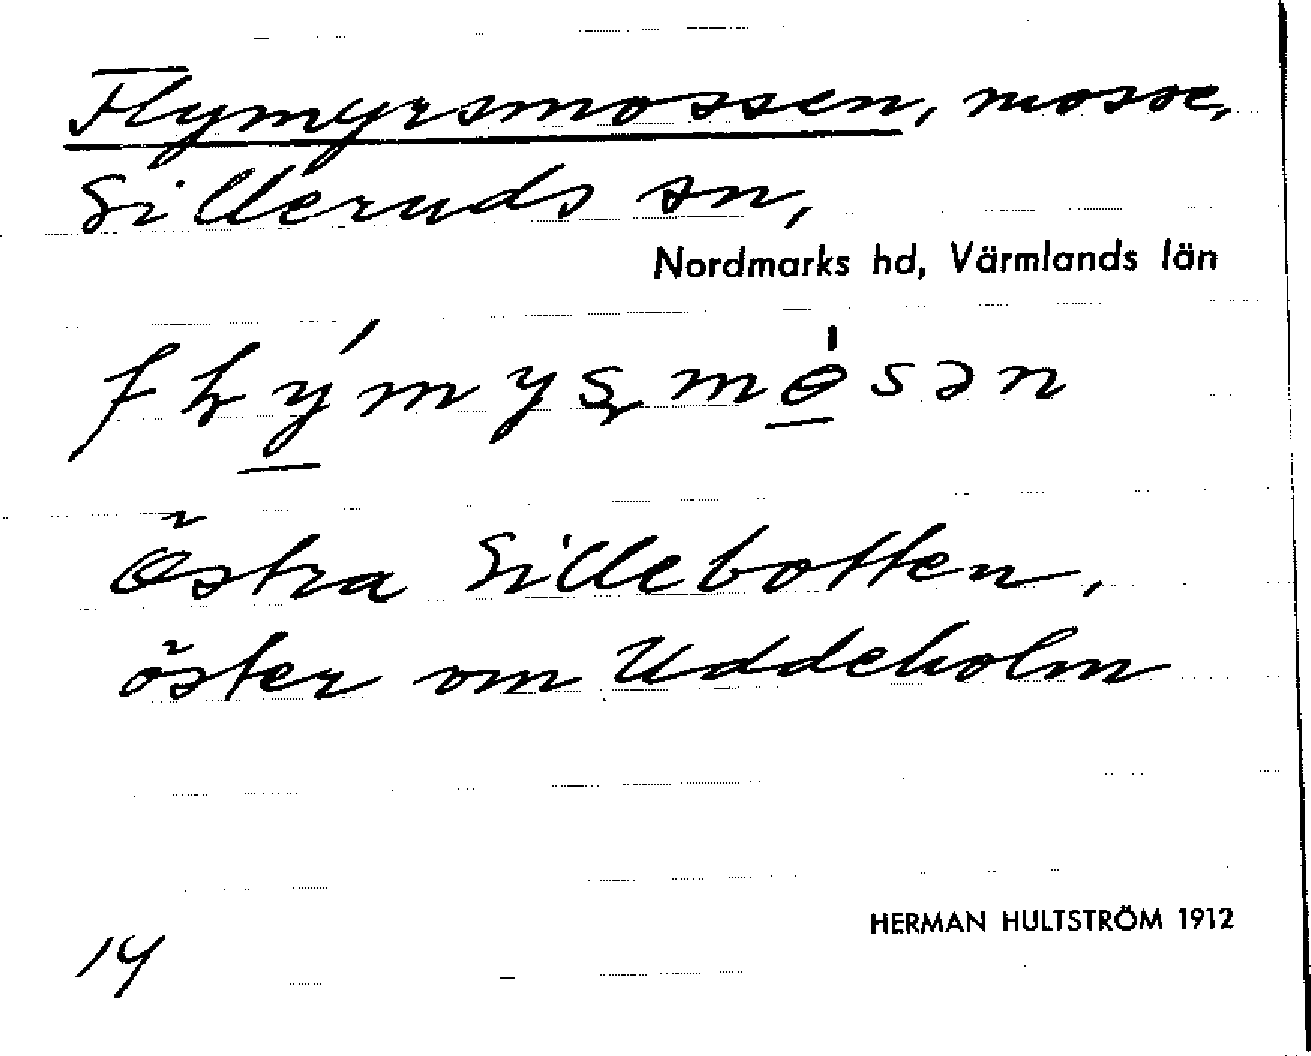 Flymyrsmossen, mosse,
Silleruds sn,
Nordmarks hd, Värmlands län
Östra Sillebotten,
öster om Uddeholm
HERMAN HULTSTRÖM 1912
14